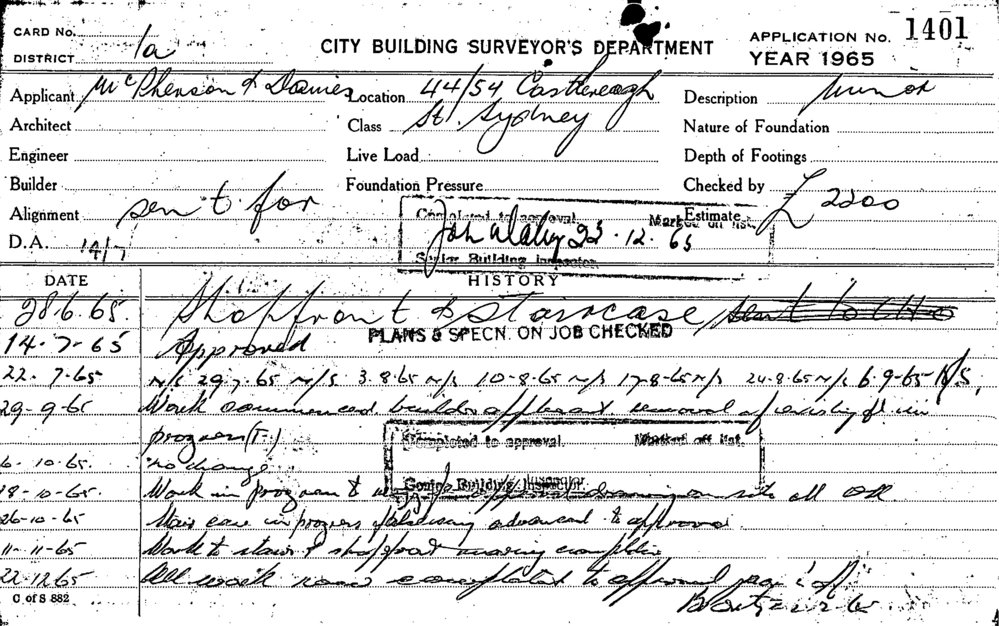 CARD No.
DISTRICT 1a
CITY BUILDING SURVEYOR'S DEPARTMENT
APPLICATION No. 1401
YEAR 1965
Applicant McPherson & Davies
Location 44/54 Castlereagh
St. Sydney
Description Minor
Architect
Class
Nature of Foundation
Engineer
Live Load
Depth of Footings
Builder
Foundation Pressure
Checked by
Alignment sent for
Estimate £2200
Completed to approval. Marked off list.
23.12.65
Senior Building Inspector
D.A. 14/7
DATE HISTORY
28.6.65. Shopfront & Staircase
PLANS & SPECN. ON JOB CHECKED
14-7-65 Approved
22.7-65 N/S 29.7.65 N/S 3.8.65 N/S 10-8-65 N/S 17-8-65 N/S 24-8-65 N/S 6.9-65 N/S
29-9-65 Work commenced removal of existing in
progress
Completed to approval. Marked off list.
6-10-65. no change
Senior Building Inspector
18-10-65. Work in progress & on site all OK
26-10-65 Stair case in progress advanced to approval
11-11-65 Work to stairs & shopfront nearing completion
22.12.65 All work now completed to approval
C of S 882